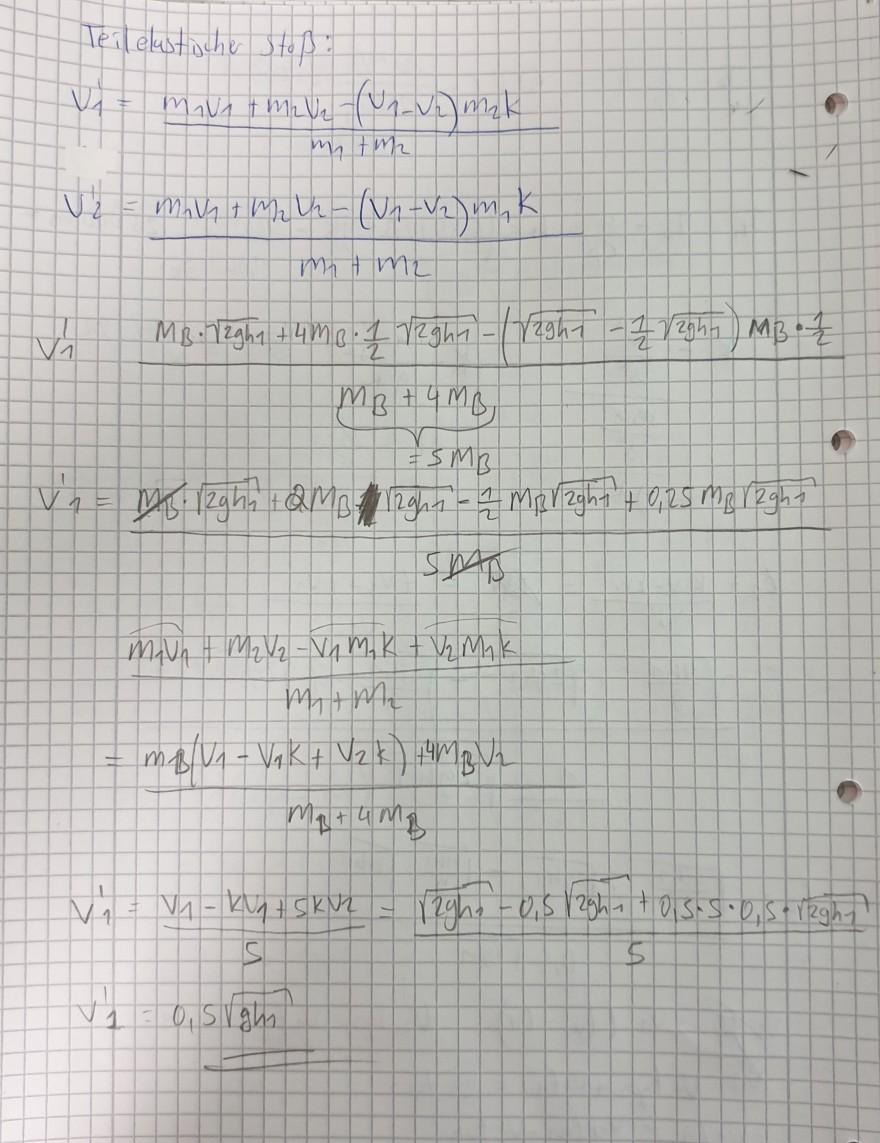 Teilelastischer Stoß:
V₁' = (m₁V₁ + m₂V₂ - (V₁-V₂)m₂k) / (m₁ + m₂)
V₂' = (m₁V₁ + m₂V₂ - (V₁-V₂)m₁k) / (m₁ + m₂)
V₁' (m_B · √(2gh₁) + 4m_B · 1/2 √(2gh₁) - (√(2gh₁) - 1/2 √(2gh₁)) m_B · 1/2) / (m_B + 4m_B)
= 5m_B
V₁' = (m_B · √(2gh₁) + 2m_B √(2gh₁) - 1/2 m_B √(2gh₁) + 0,25 m_B √(2gh₁)) / (5m_B)
(m₁v₁ + m₂v₂ - v₁m₁k + v₂m₁k) / (m₁ + m₂)
= (m_B(V₁ - V₁k + V₂k) + 4m_BV₂) / (m_B + 4m_B)
V₁' = (V₁ - kV₁ + 5kV₂) / 5 = (√(2gh₁) - 0,5 √(2gh₁) + 0,5·5·0,5·√(2gh₁)) / 5
V₁' = 0,5√(gh₁)